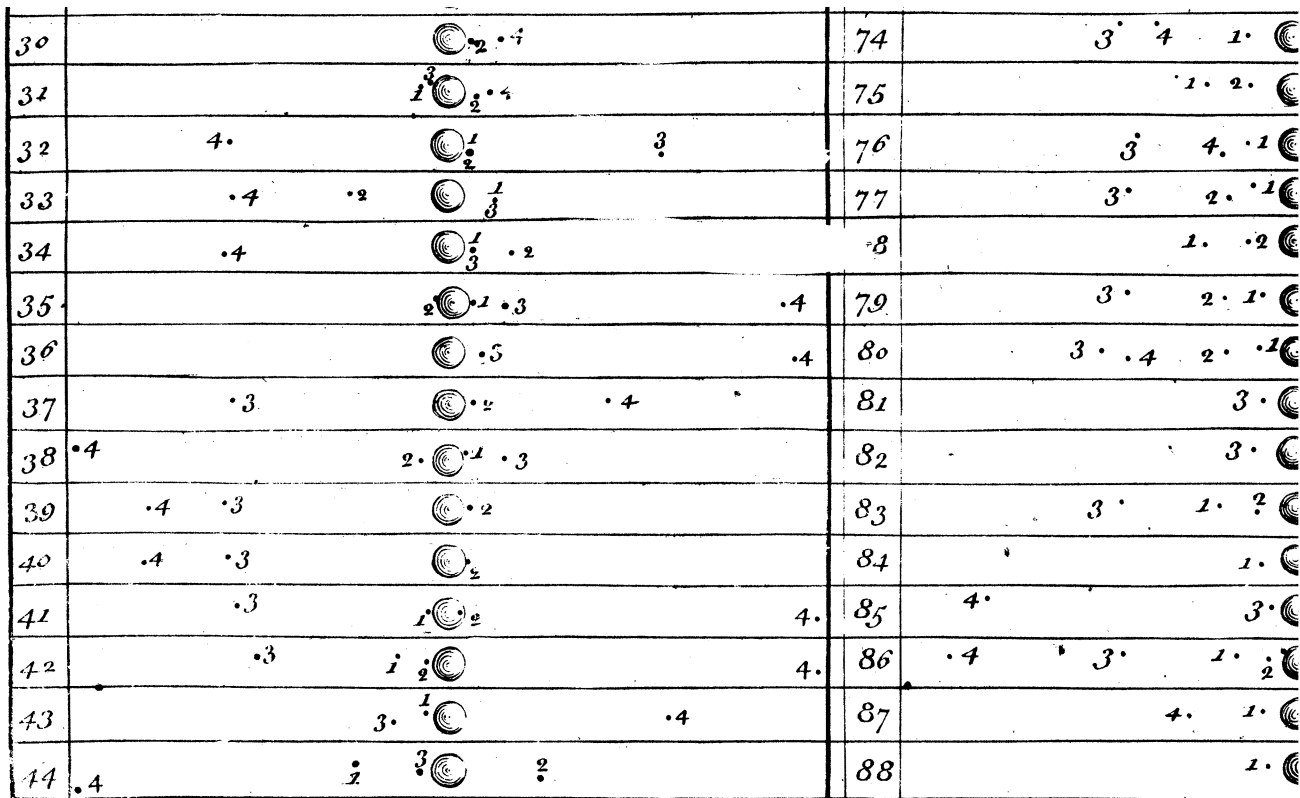 30 2 4 74 3 4 1
31 1 3 2 4 75 1 2
32 4 1 2 3 76 3 4 1
33 4 2 1 3 77 3 2 1
34 4 1 3 2 8 1 2
35 2 1 3 4 79 3 2 1
36 3 4 80 3 4 2 1
37 3 2 4 81 3
38 4 2 1 3 82 3
39 4 3 2 83 3 1 2
40 4 3 2 84 1
41 3 1 2 4 85 4 3
42 3 1 2 4 86 4 3 1 2
43 3 1 4 87 4 1
44 4 1 3 2 88 1